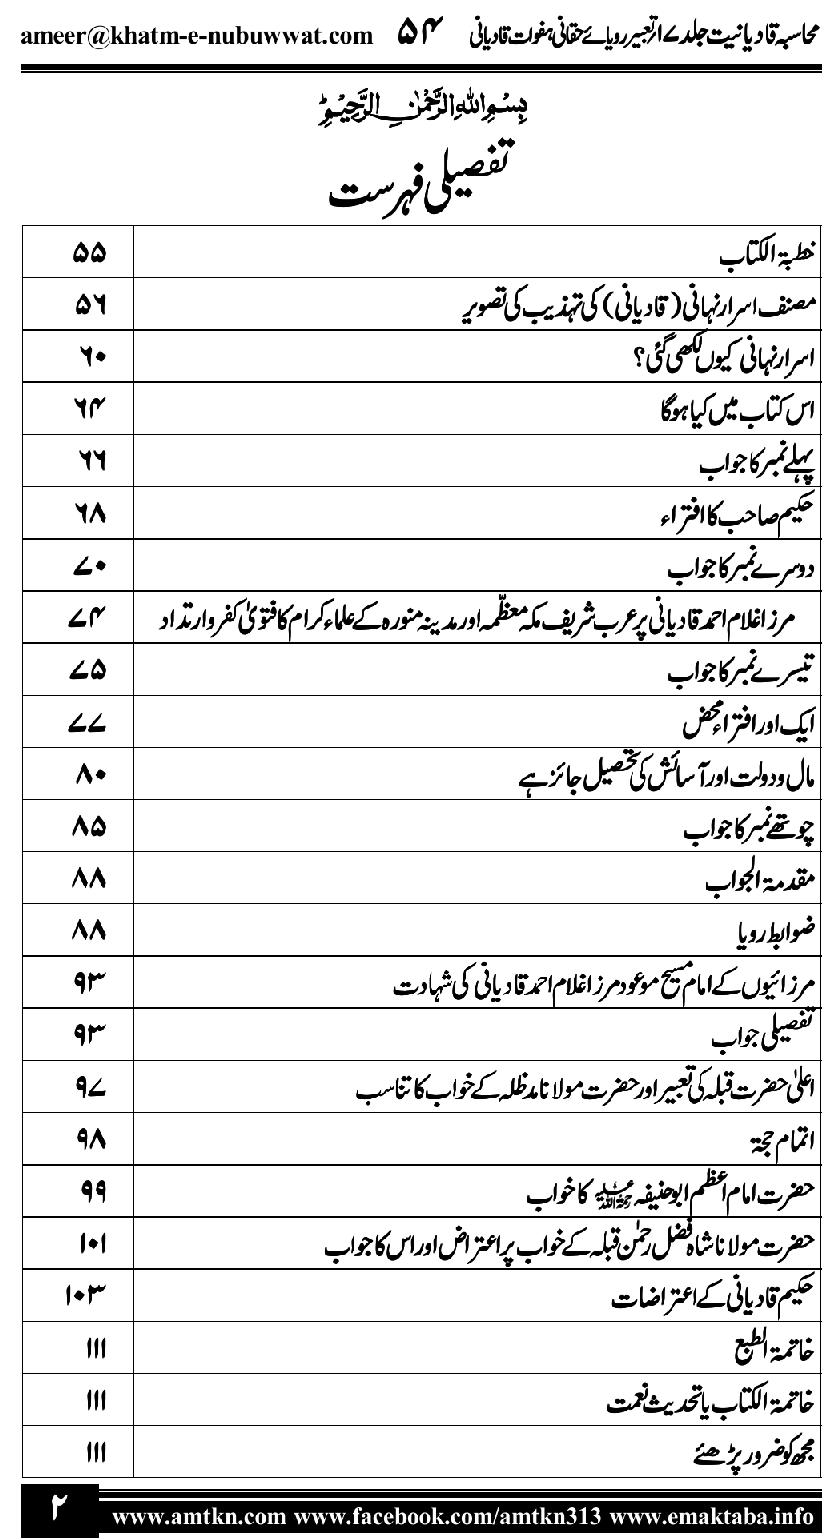 محاسبہ قادیانیت جلد ۱۷ / تعبیر رویائے حقانی ہفوات قادیانی ۵۴ ameer@khatm-e-nubuwwat.com
بسم اللہ الرحمٰن الرحیم
تفصیلی فہرست
خطبۃ الکتاب ۵۵
مصنف اسرار نہانی (قادیانی) کی تہذیب کی تصویر ۵۶
اسرار نہانی کیوں لکھی گئی؟ ۶۰
اس کتاب میں کیا ہوگا ۶۴
پہلے نمبر کا جواب ۶۶
حکیم صاحب کا افتراء ۶۸
دوسرے نمبر کا جواب ۷۰
مرزا غلام احمد قادیانی پر عرب شریف مکہ معظّمہ اور مدینہ منورہ کے علماء کرام کا فتویٰ کفر وارتداد ۷۴
تیسرے نمبر کا جواب ۷۵
ایک اور افتراء محض ۷۷
مال ودولت اور آسائش کی تحصیل جائز ہے ۸۰
چوتھے نمبر کا جواب ۸۵
مقدمۃ الجواب ۸۸
ضوابط رویا ۸۸
مرزائیوں کے امام مسیح موعود مرزا غلام احمد قادیانی کی شہادت ۹۳
تفصیلی جواب ۹۳
اعلیٰ حضرت قبلہ کی تعبیر اور حضرت مولانا مدظلہ کے خواب کا تناسب ۹۷
اتمام حجۃ ۹۸
حضرت امام اعظم ابوحنیفہ رحمۃ اللہ علیہ کا خواب ۹۹
حضرت مولانا شاہ فضل رحمٰن قبلہ کے خواب پر اعتراض اور اس کا جواب ۱۰۱
حکیم قادیانی کے اعتراضات ۱۰۳
خاتمۃ الطبع ۱۱۱
خاتمۃ الکتاب یا تحدیث نعمت ۱۱۱
مجھ کو ضرور پڑھئے ۱۱۱
۲ www.amtkn.com www.facebook.com/amtkn313 www.emaktaba.info